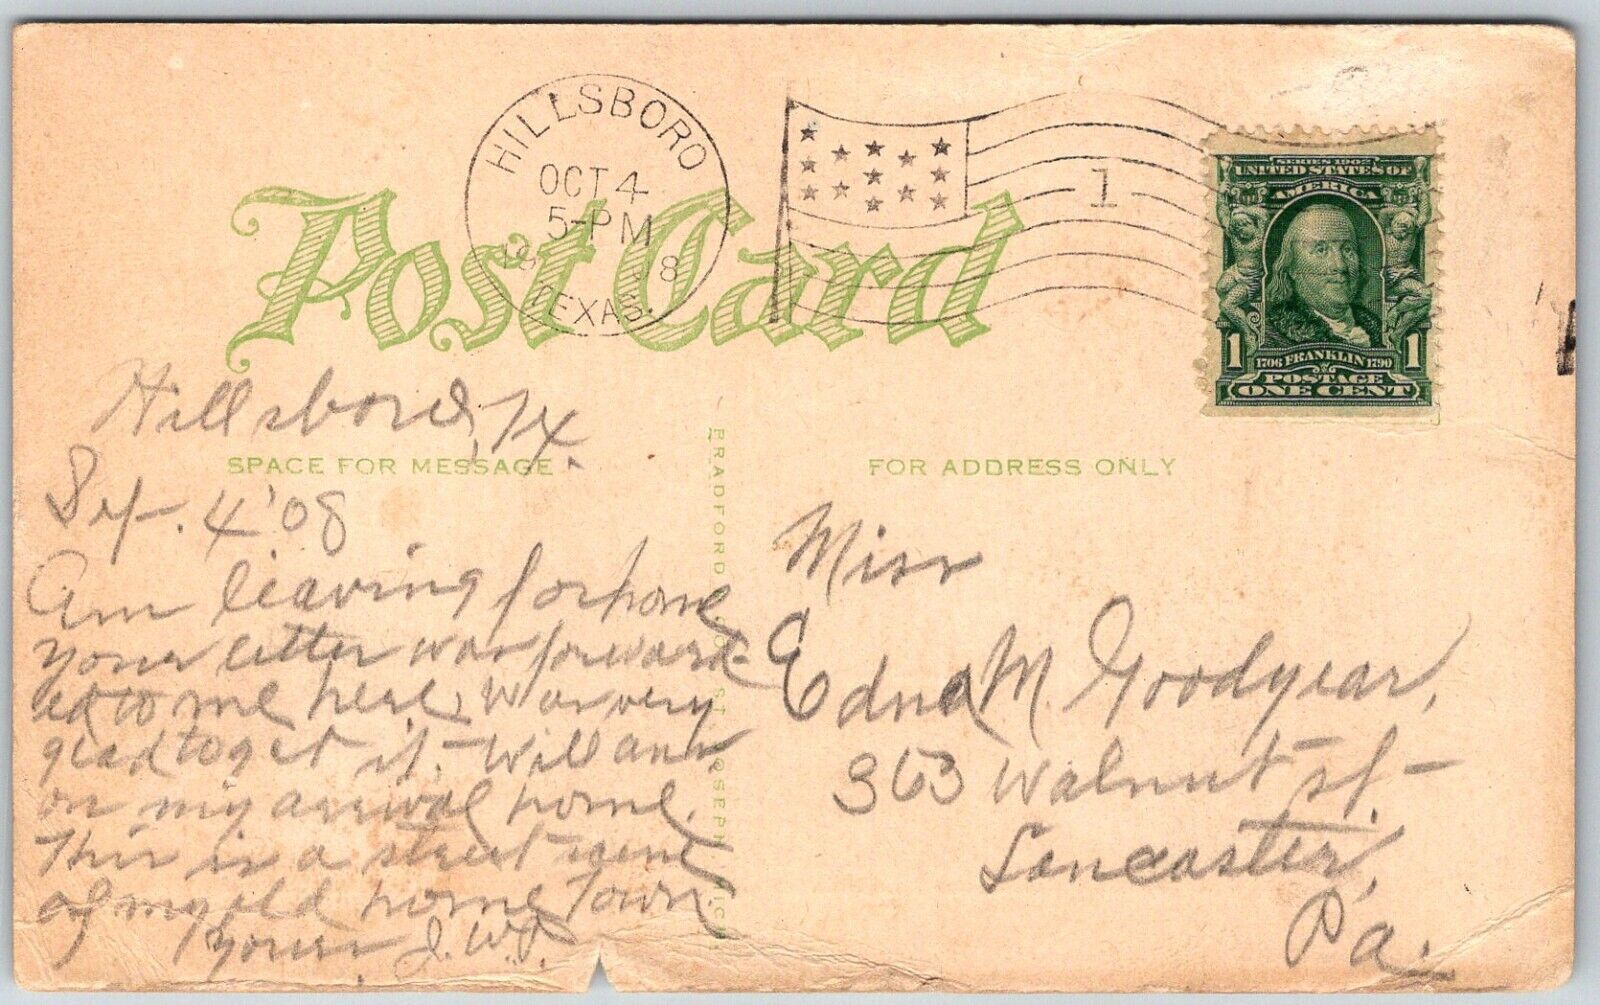 HILLSBORO
OCT 4
5-PM
19 8
TEXAS.
1
SERIES 1902
UNITED STATES OF
AMERICA
1706 FRANKLIN 1790
1 1
POSTAGE
ONE CENT
Post Card
SPACE FOR MESSAGE.
FOR ADDRESS ONLY
BRADFORD ST JOSEPH MICH
Hillsboro, Tx.
Sep. 4 '08
Am leaving for home
your letter was forward-
ed to me here, Was very
glad to get it, - Will ans.
on my arrival home.
This is a street scene
of my old home Town.
Yours J.W.P.
Miss
Edna M. Goodyear,
363 Walnut st. -
Lancaster,
Pa.